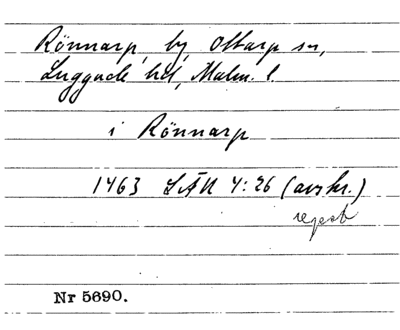 Rönnarp, by, Ottarp sn,
Luggude hd, Malm. l.
i Rönnarp
1463 LÄU 4:26 (avskr.)
regest
Nr 5690.